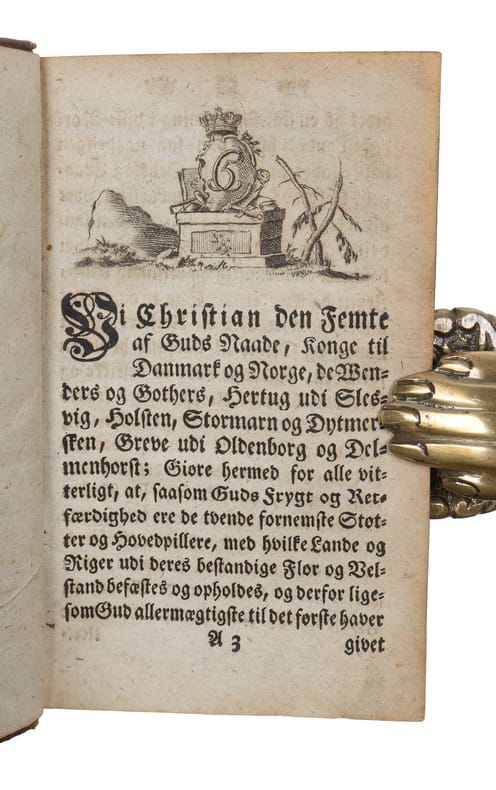 Vi Christian den Femte
af Guds Naade, Konge til
Danmark og Norge, de Wen-
ders og Gothers, Hertug udi Sles-
vig, Holsten, Stormarn og Dytmer-
sken, Greve udi Oldenborg og Del-
menhorst; Giøre hermed for alle vit-
terligt, at, saasom Guds Frygt og Ret-
færdighed ere de tvende fornemste Støt-
ter og Hovedpillere, med hvilke Lande og
Riger udi deres bestandige Flor og Vel-
stand befæstes og opholdes, og derfor lige-
som Gud allermægtigste til det første haver
A 3
givet